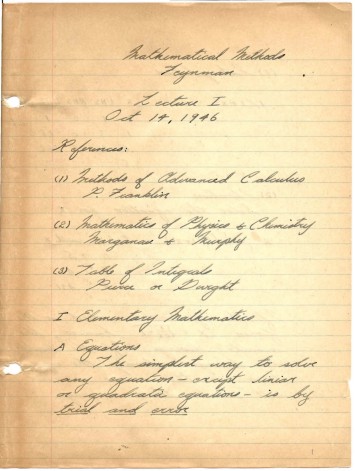 Mathematical Methods
Feynman
Lecture I
Oct 14, 1946
References:
(1) Methods of Advanced Calculus
P. Franklin
(2) Mathematics of Physics & Chemistry
Marganau & Murphy
(3) Table of Integrals
Pierce or Dwight
I Elementary Mathematics
A Equations
The simplest way to solve
any equation - except linear
or quadratic equations - is by
trial and error